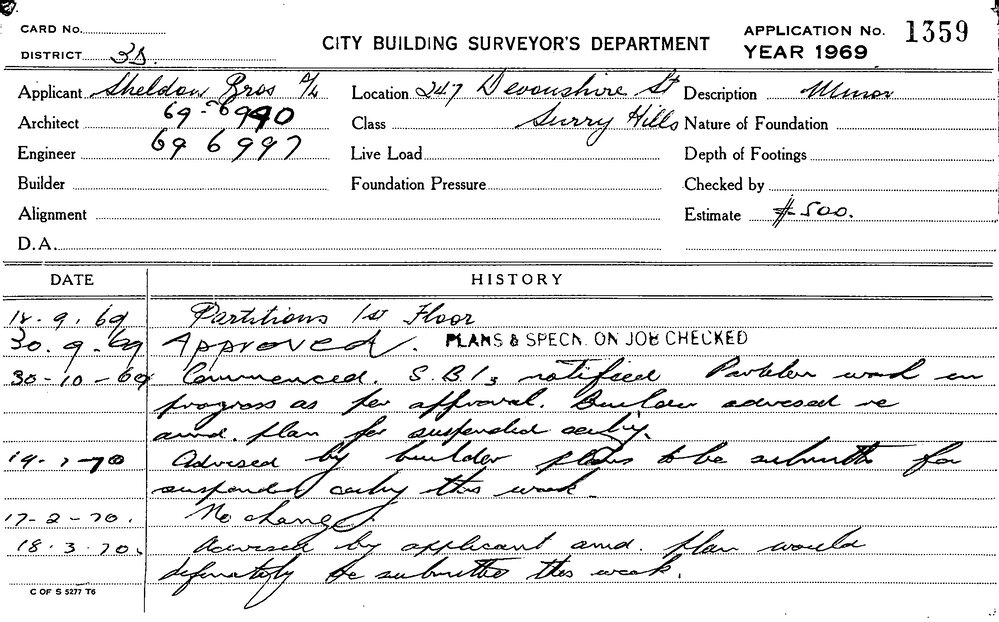 CARD No.
DISTRICT 3D.
CITY BUILDING SURVEYOR'S DEPARTMENT
APPLICATION No. 1359
YEAR 1969
Applicant Sheldon Bros
Location 247 Devonshire St
Description Minor
Architect 69-6990
Class Surry Hills
Nature of Foundation
Engineer 69 6997
Live Load
Depth of Footings
Builder
Foundation Pressure
Checked by
Alignment
Estimate $500.
D.A.
DATE HISTORY
18.9.69 Partitions 1st Floor
30.9.69 Approved. PLANS & SPECN. ON JOB CHECKED
30-10-69 Commenced. S.B.I. notified Partition work in
progress as per approval. Builder advised re
amd. plan for suspended ceiling.
19-1-70 Advised by builder plans to be submitted for
suspended ceiling this week.
17-2-70. No change.
18.3.70. Advised by applicant amd. plan would
definately be submitted this week.
C OF S 5277 T6